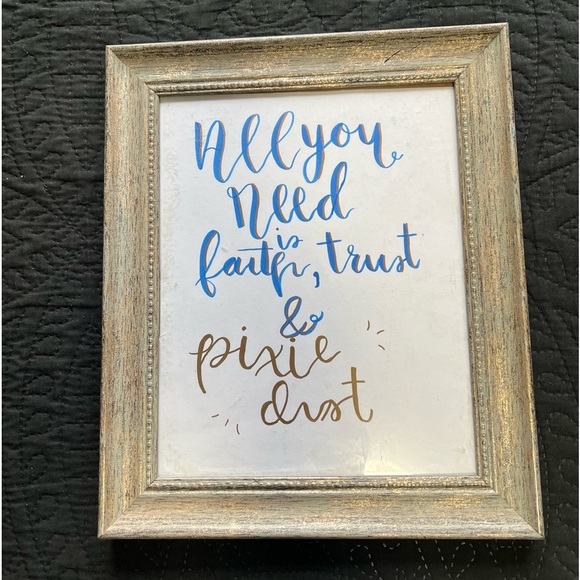 All you
need
is
faith, trust
&
pixie
dust